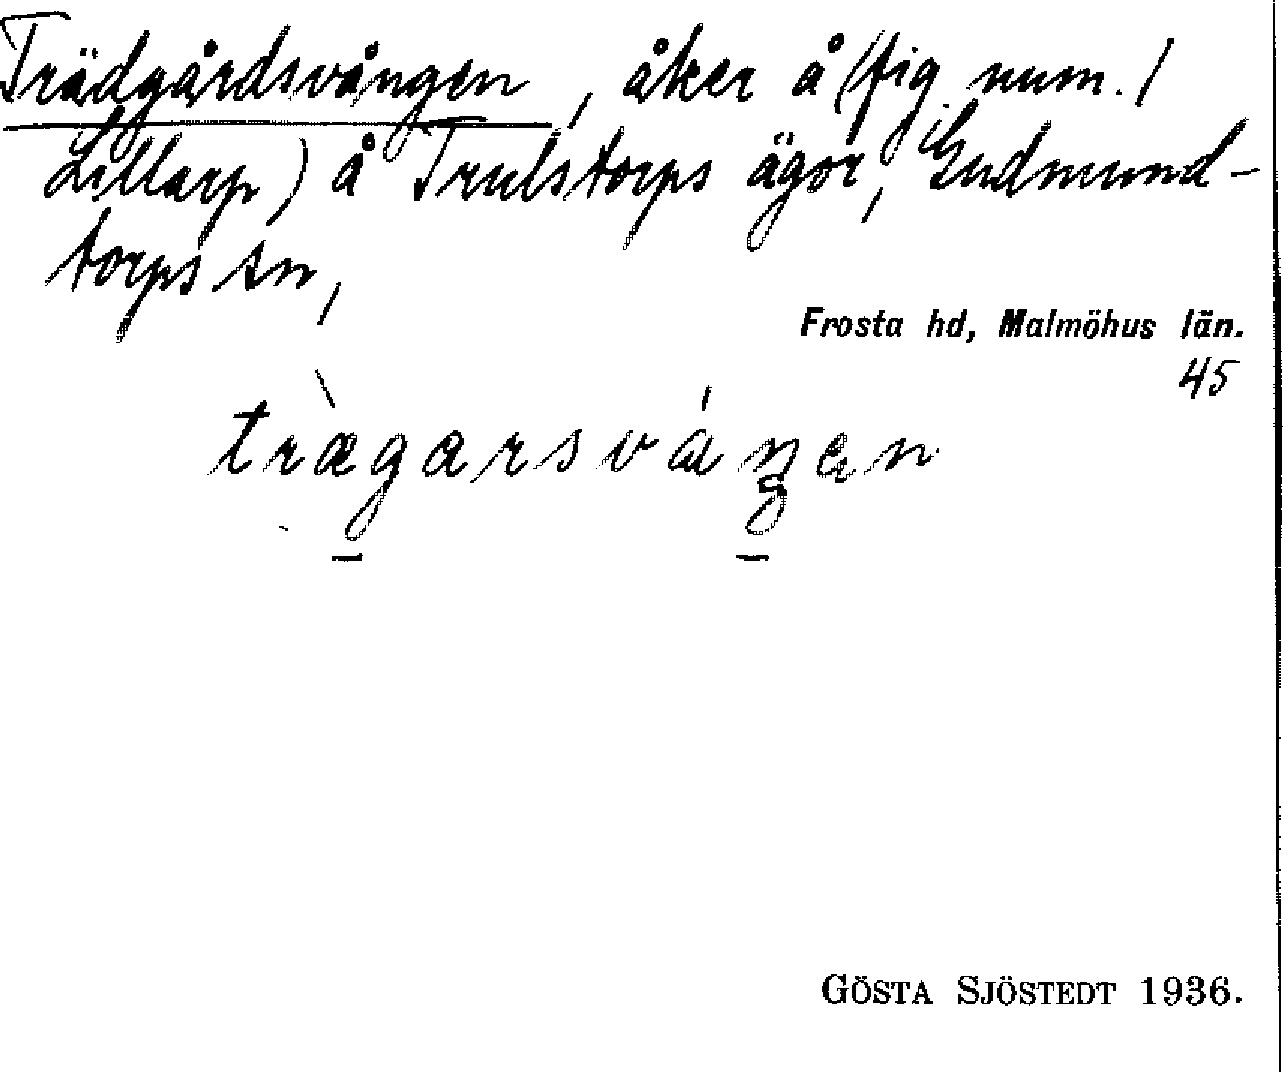 Trädgårdsvången, åker å (fig. num. 1
Lillarp) å Trulstorps ägor, Gudmund-
torps sn,
Frosta hd, Malmöhus län.
45
træ̀garsváŋen
GÖSTA SJÖSTEDT 1936.